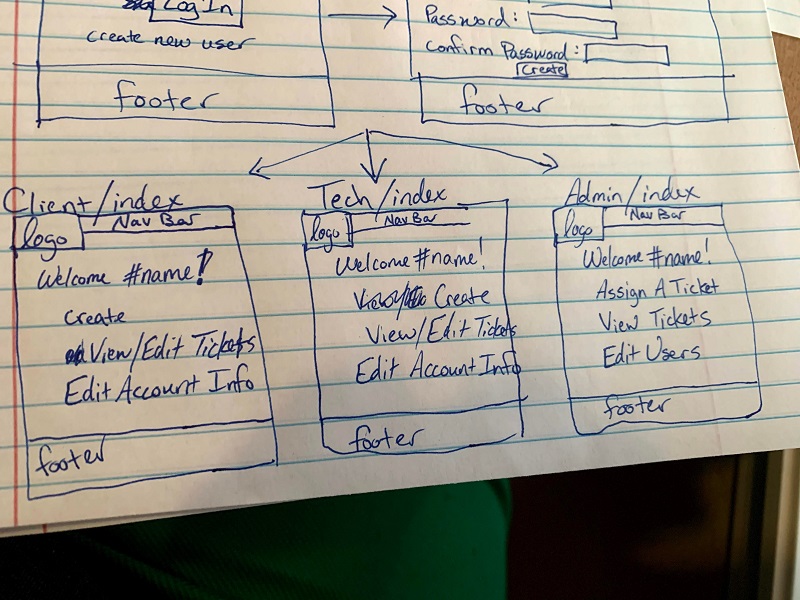 Log In
create new user
footer
Password:
Confirm Password:
Create
footer
Client/index
Nav Bar
logo
Welcome #name!
Create
View/Edit Tickets
Edit Account Info
footer
Tech/index
Nav Bar
logo
Welcome #name!
Create
View/Edit Tickets
Edit Account Info
footer
Admin/index
Nav Bar
logo
Welcome #name!
Assign A Ticket
View Tickets
Edit Users
footer